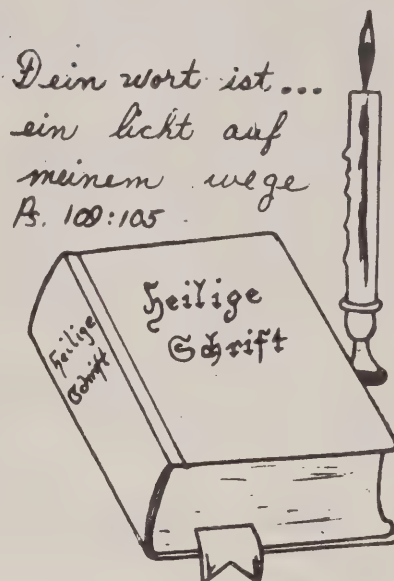 Dein wort ist...
ein licht auf
meinem wege
Ps. 109:105
Heilige
Schrift
Heilige
Schrift